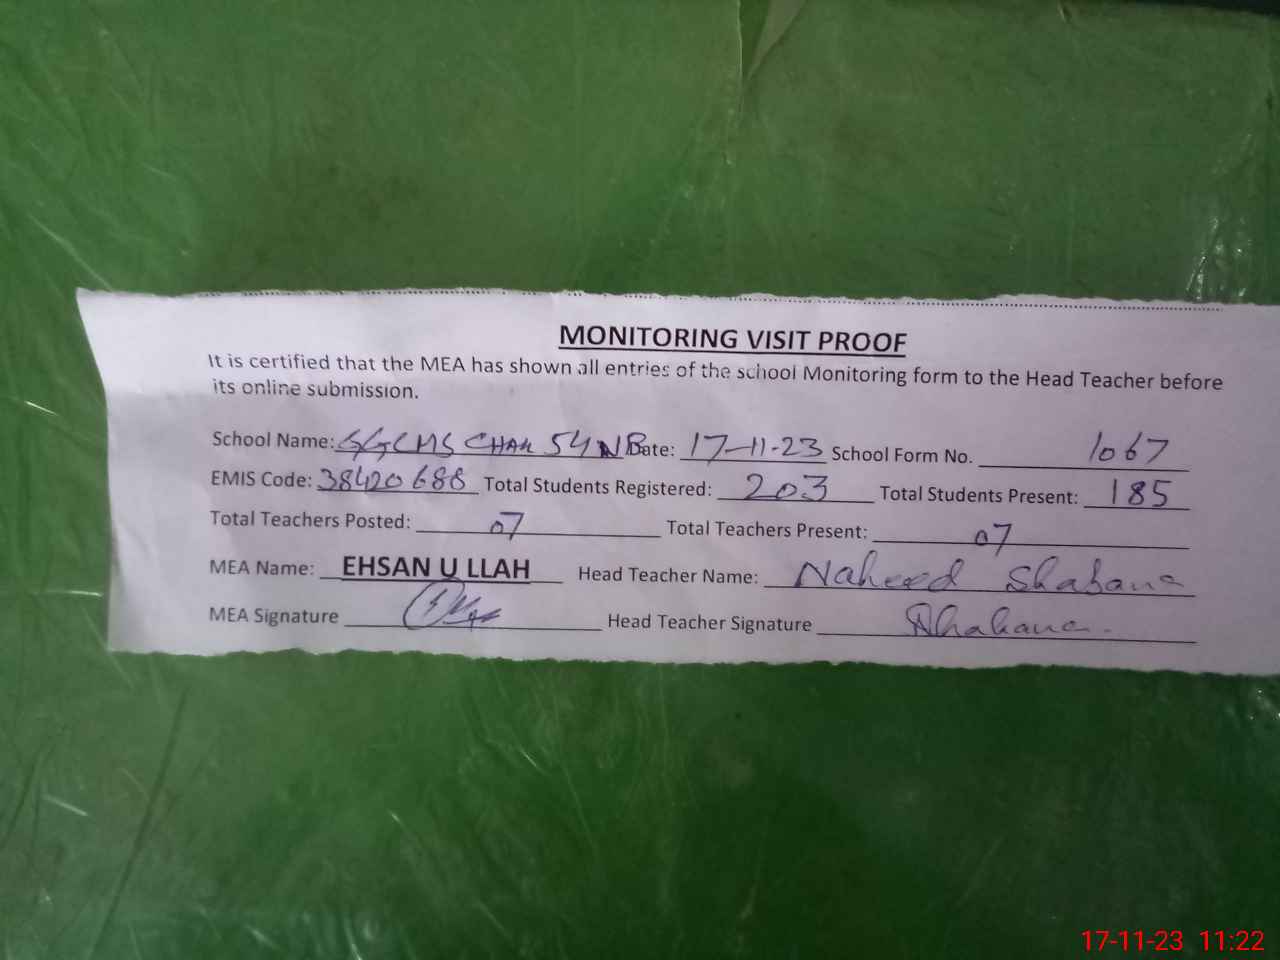 MONITORING VISIT PROOF
It is certified that the MEA has shown all entries of the school Monitoring form to the Head Teacher before
its online submission.
School Name: GGCMS CHAK 54 NB Date: 17-11-23 School Form No. 1067
EMIS Code: 38420688 Total Students Registered: 203 Total Students Present: 185
Total Teachers Posted: 07 Total Teachers Present: 07
MEA Name: EHSAN U LLAH Head Teacher Name: Naheed Shabana
MEA Signature Head Teacher Signature Shabana.
17-11-23 11:22